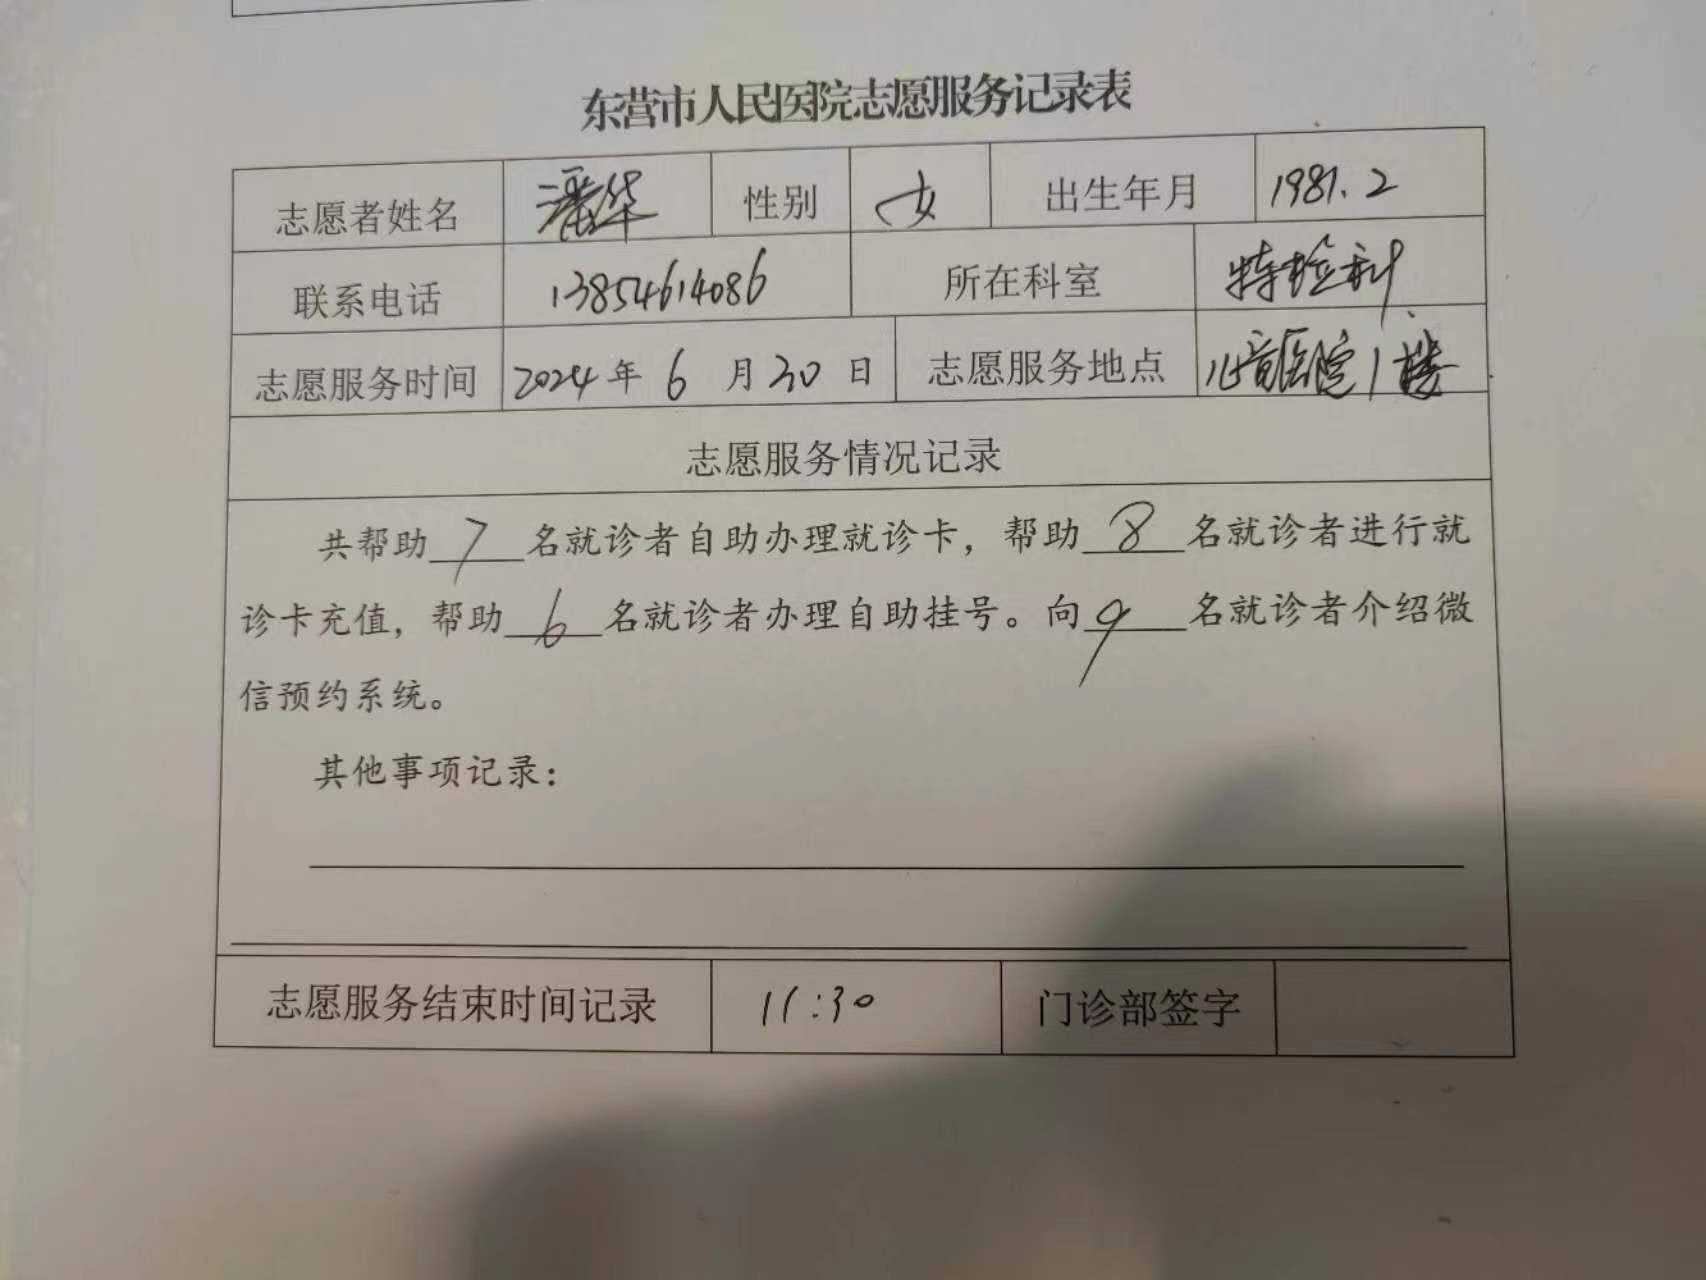 东营市人民医院志愿服务记录表
志愿者姓名 潘华 性别 女 出生年月 1981.2
联系电话 13854614086 所在科室 特检科
志愿服务时间 2024年 6 月 30 日 志愿服务地点 儿童医院1楼
志愿服务情况记录
共帮助 7 名就诊者自助办理就诊卡，帮助 8 名就诊者进行就
诊卡充值，帮助 6 名就诊者办理自助挂号。向 9 名就诊者介绍微
信预约系统。
其他事项记录：
志愿服务结束时间记录 11:30 门诊部签字